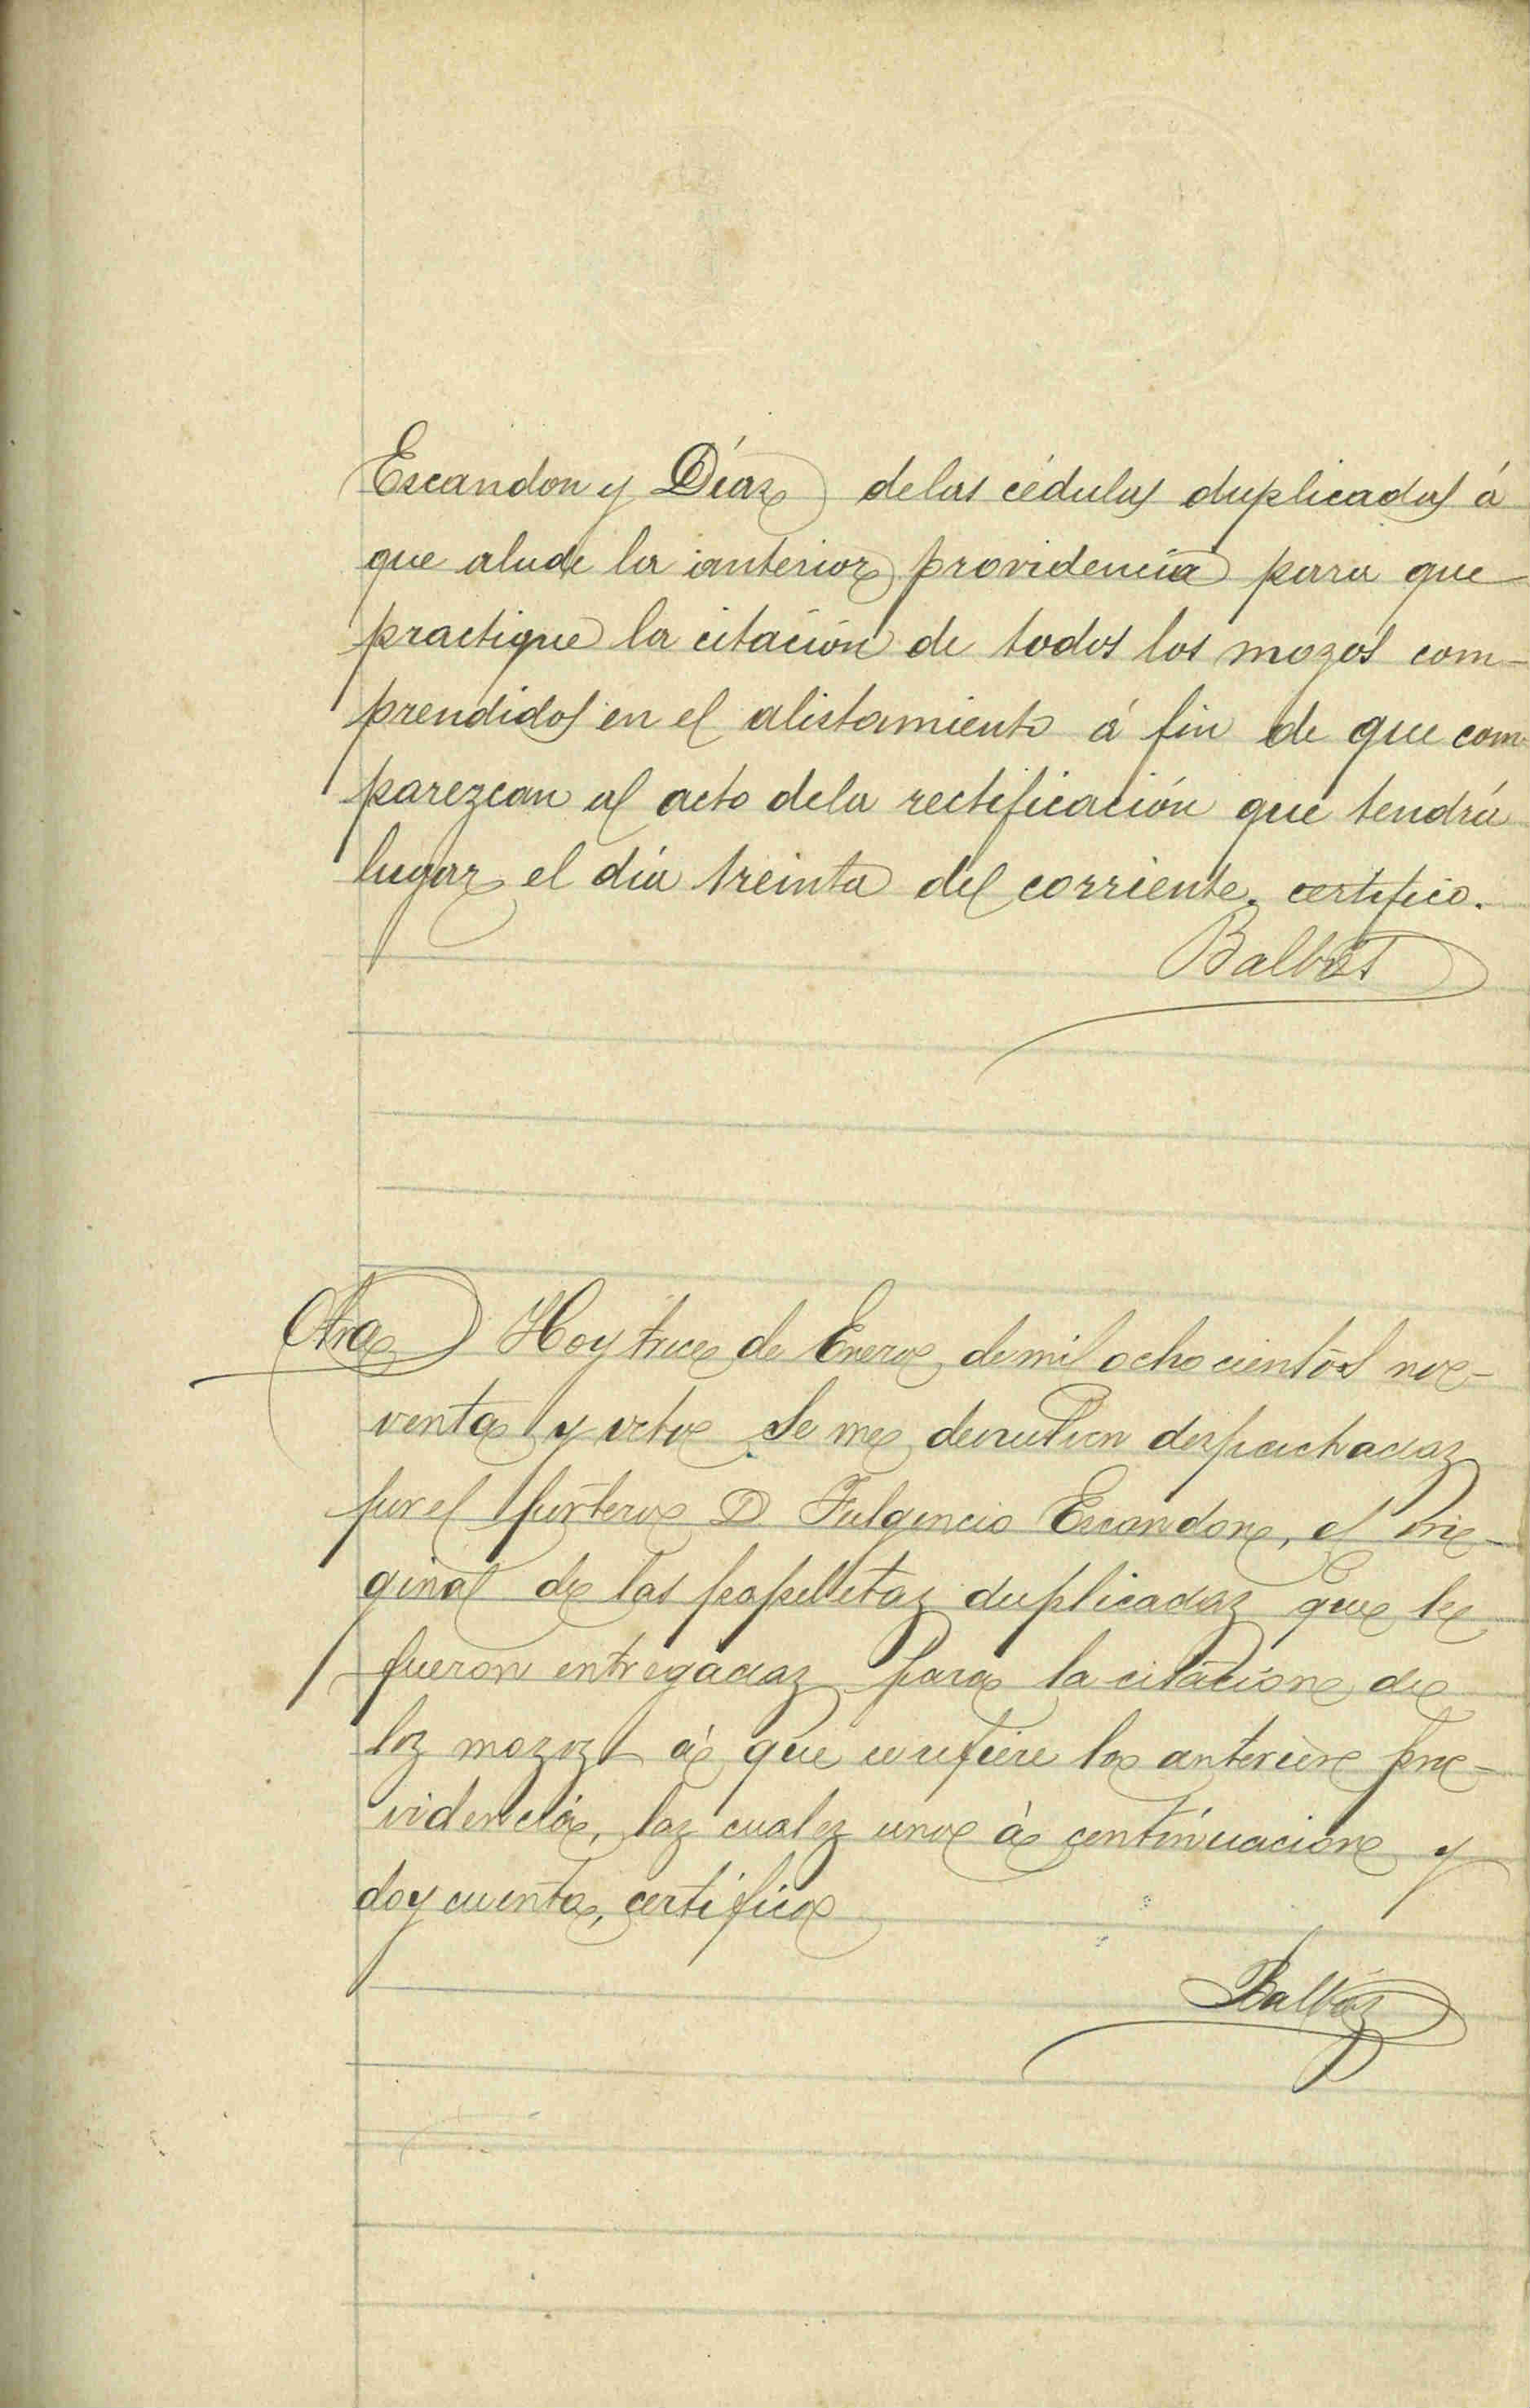 Escandon y Díaz de las cédulas duplicadas á
que alude la anterior providencia para que
practique la citación de todos los mozos com-
prendidos en el alistamiento á fin de que com-
parezcan al acto de la rectificación que tendrá
lugar el día treinta del corriente. certifico.
Balbás
Otra Hoy trece de Enero de mil ochocientos no-
venta y ocho se me devuelven despachadas
por el portero D. Fulgencio Escandon, el ori-
ginal de las papeletas duplicadas que le
fueron entregadas para la citación de
los mozos á que se refiere la anterior pro-
videncia, las cuales uno á continuacion y
doy cuenta, certifico
Balbás